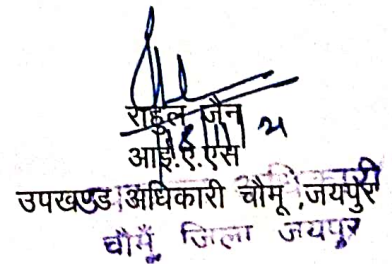 राहुल जैन
आई.ए.एस
उपखण्ड अधिकारी चौमू ,जयपुर
चौमूँ, जिला जयपुर